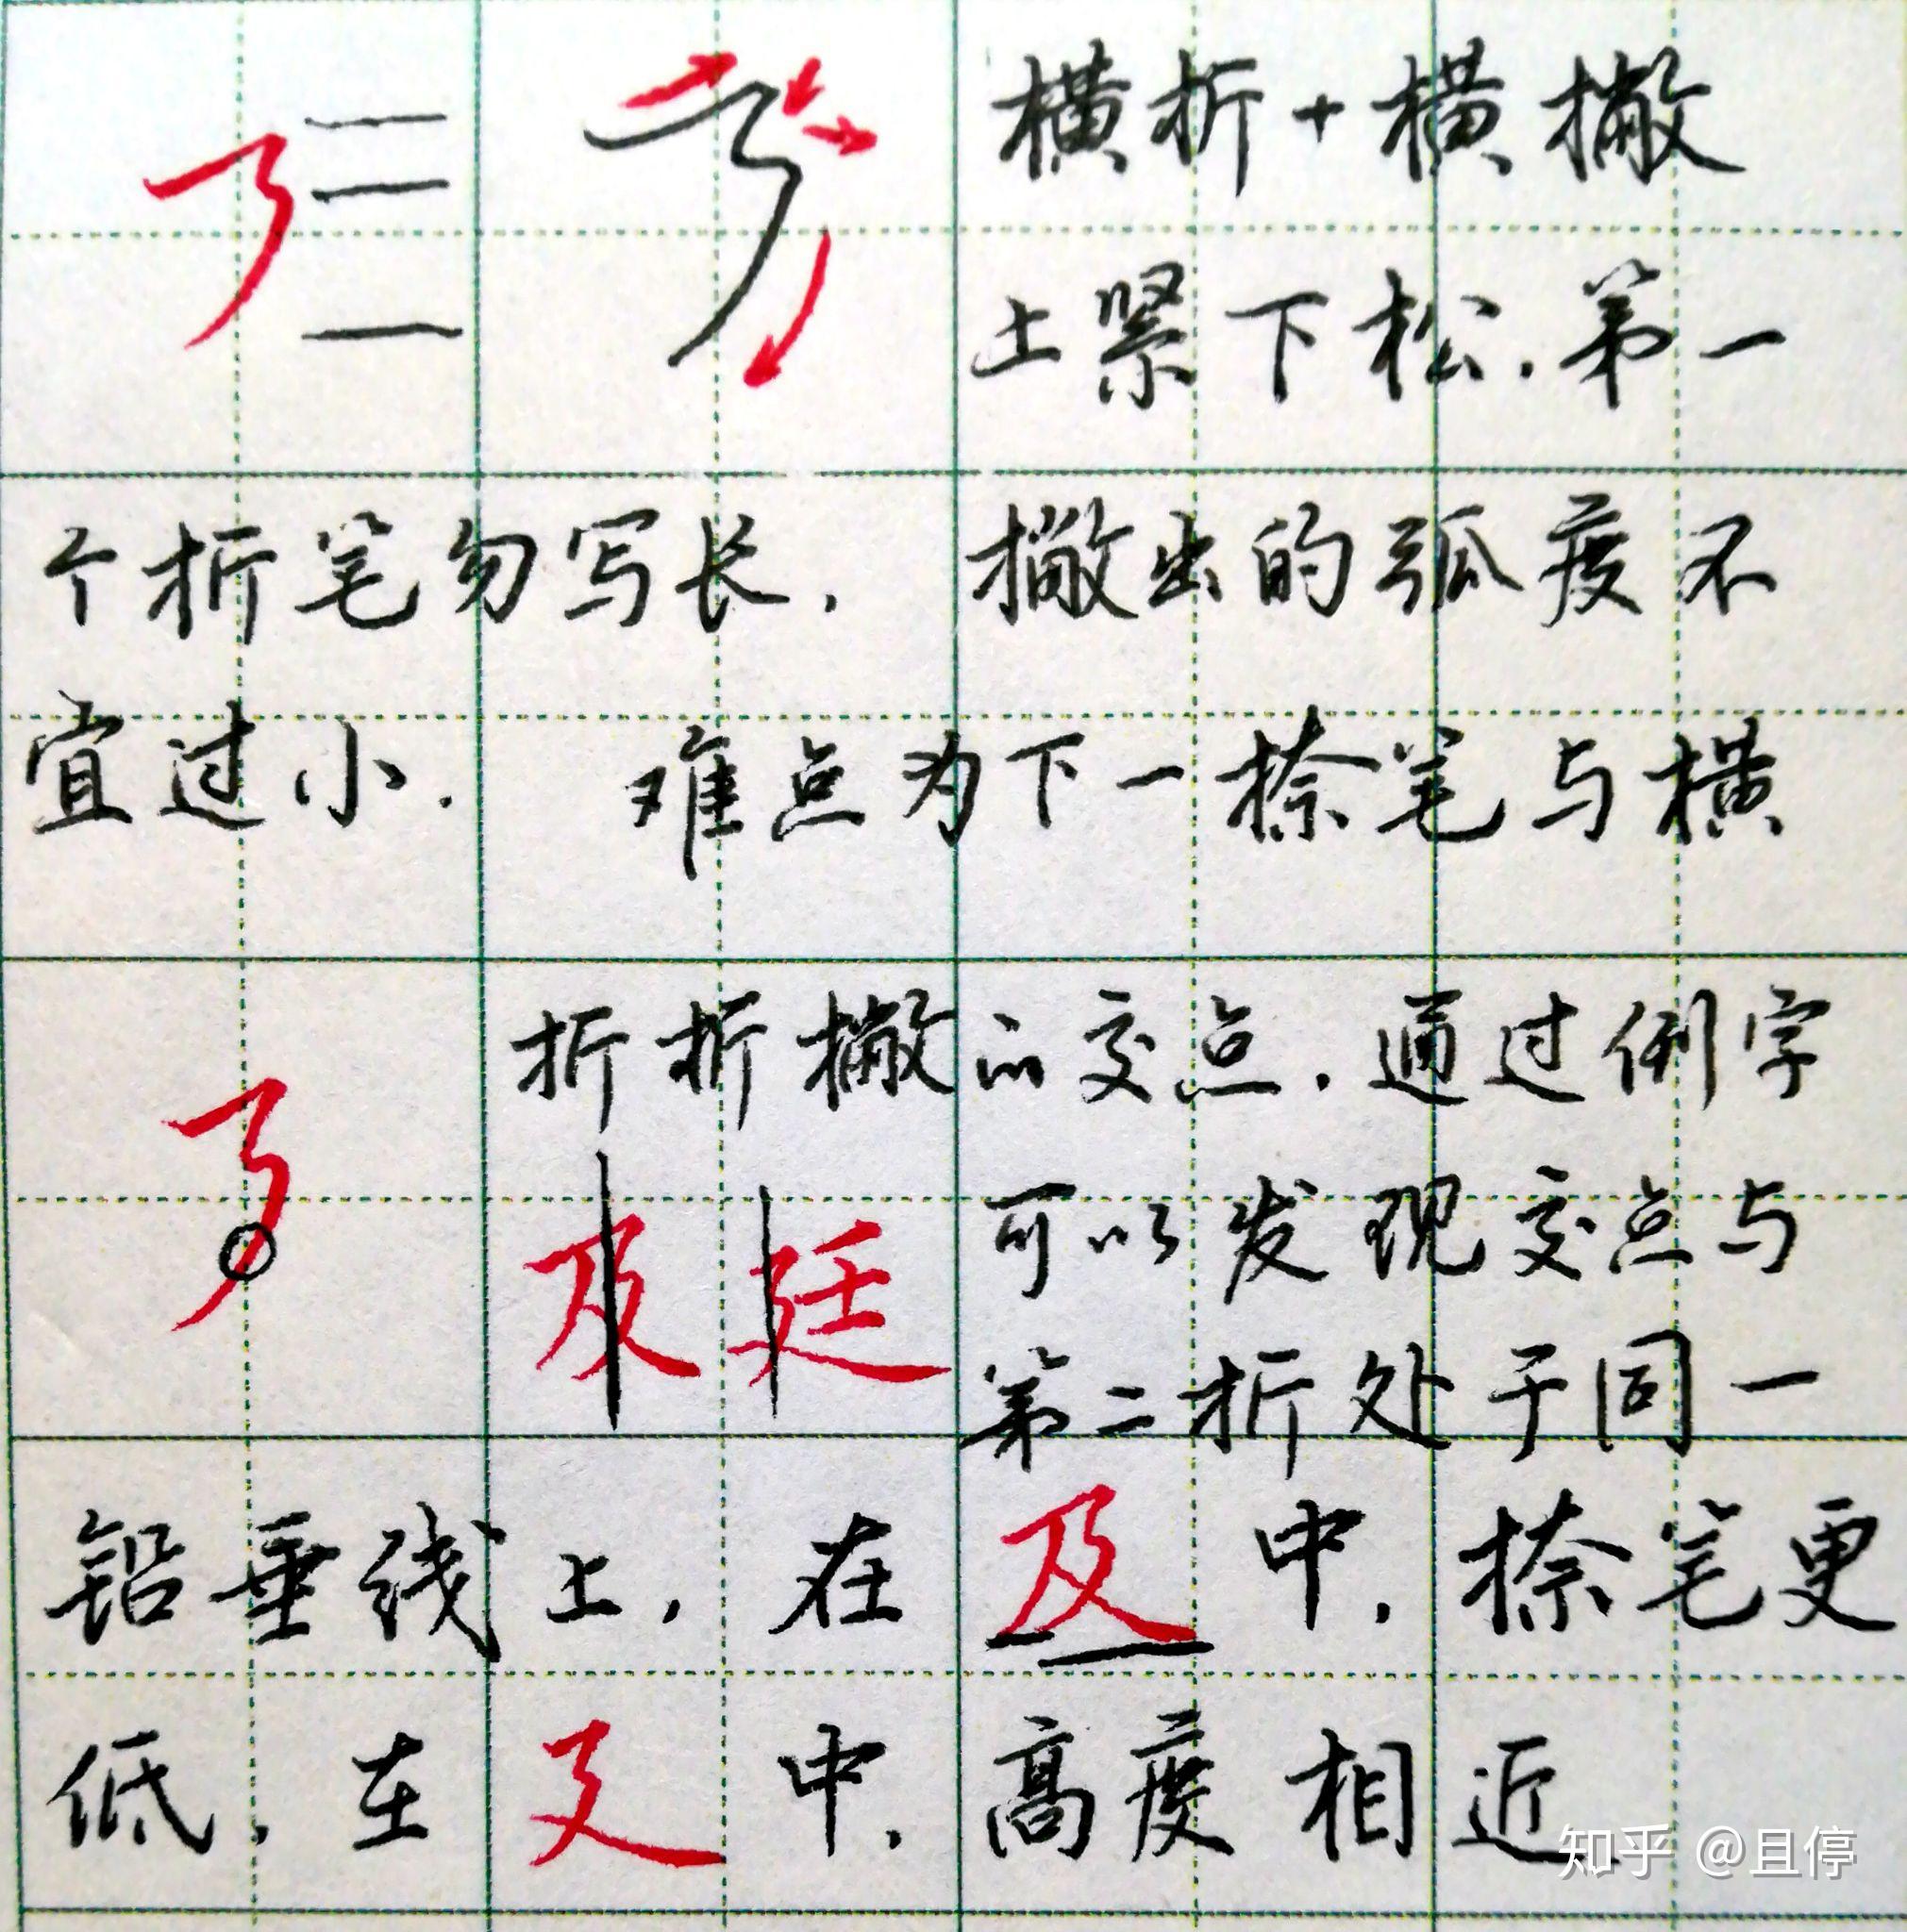 横折+横撇
上紧下松.第一
个折笔勿写长, 撇出的弧度不
宜过小. 难点为下一捺笔与横
折折撇的交点.通过例字
及 廷
可以发现交点与
第二折处于同一
铅垂线上, 在及中,捺笔更
低,在廴中,高度相近.
知乎 @且停